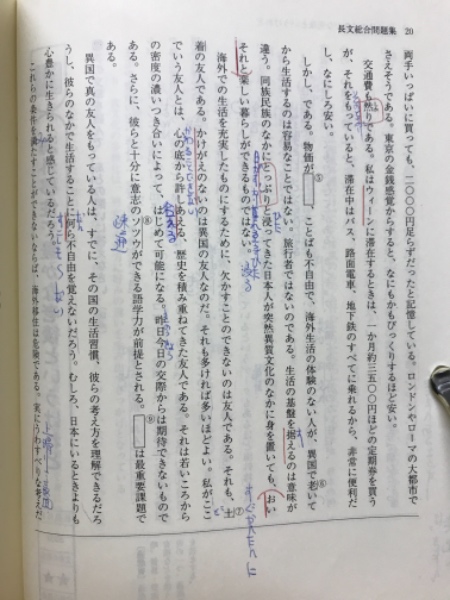 長文総合問題集 20
両手いっぱいに買っても、二〇〇〇円足らずだったと記憶している。ロンドンやローマの大都市で
さえそうである。東京の金銭感覚からすると、なにもかもびっくりするほど安い。
交通費も然りである。私はウィーンに滞在するときは、一か月約三五〇〇円ほどの定期券を買う
が、それをもっていると、滞在中はバス、路面電車、地下鉄のすべてに乗れるから、非常に便利だ
し、なにしろ安い。
しかし、である。物価が⑤、ことばも不自由で、海外生活の体験のない人が、異国で老いて⑥
から生活するのは容易なことではない。旅行者ではないのである。生活の基盤を据えるのは意味が
違う。同族民族のなかにとっぷりと浸ってきた日本人が突然異質文化のなかに身を置いても、おい
それと楽しい暮らしができるものではない。
海外での生活を充実したものにするために、欠かすことのできないのは友人である。それも、土⑦
着の友人である。かけがえのないのは異国の友人なのだ。それも多ければ多いほどよい。私がここ
でいう友人とは、心の底から許しあえる、歴史を積み重ねてきた友人である。それは若いころから
の密度の濃いつき合いによって、はじめて可能になる。昨日今日の交際からは期待できないもので
ある。さらに、彼らと十分に意志のソツウができる語学力が前提とされる。⑨は最重要課題で
⑧
ある。
異国で真の友人をもっている人は、すでに、その国の生活習慣、彼らの考え方を理解できるだろ
うし、彼らのなかで生活することに何ら不自由を覚えないだろう。むしろ、日本にいるときよりも
心豊かに生きられると感じているだろう。
これらの条件を満たすことができないならば、海外移住は危険である。実にうわすべりな考えだ
疎通